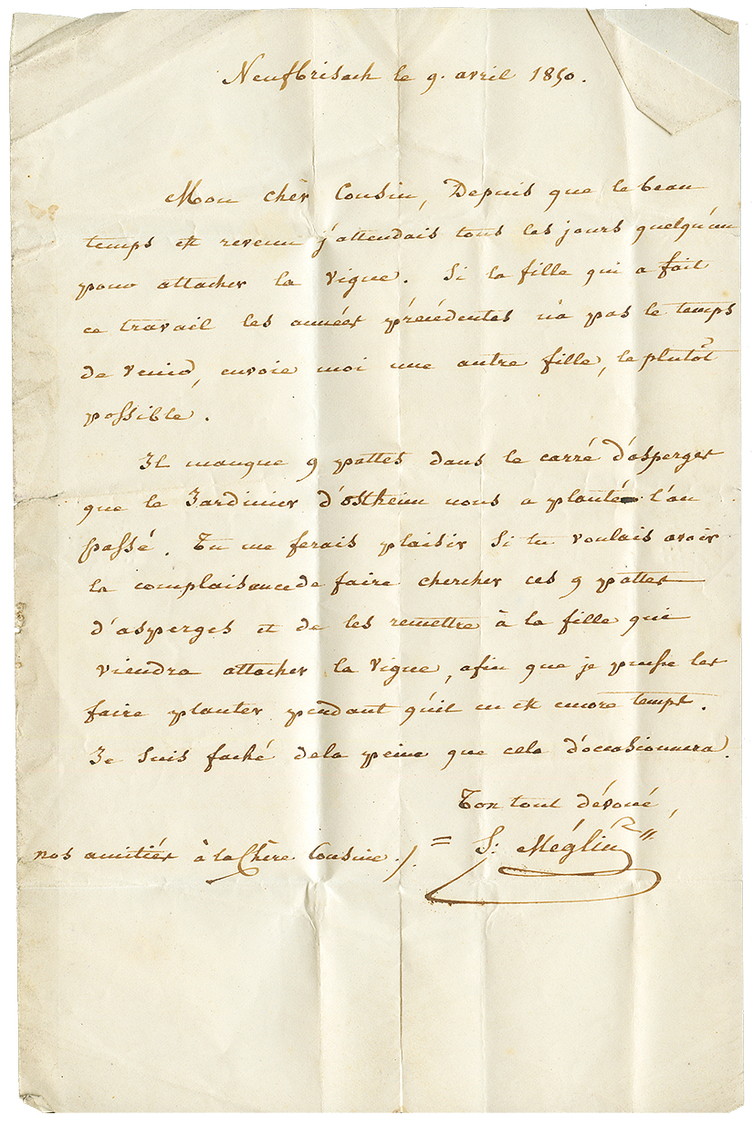 Neufbrisach le 9. avril 1850.
Mon cher Cousin, Depuis que le beau
temps est revenu j'attendais tous les jours quelqu'un
pour attacher la vigne. Si la fille qui a fait
ce travail les années précédentes n'a pas le temps
de venir, envoie moi une autre fille, le plutôt
possible.
Il manque 9 pattes dans le carré d'asperges
que le Jardinier d'ostheim nous a planté l'an
passé. Tu me ferais plaisir si tu voulais avoir
la complaisance de faire chercher ces 9 pattes
d'asperges et de les remettre à la fille qui
viendra attacher la vigne, afin que je puisse les
faire planter pendant qu'il en est encore temps.
Je suis faché de la peine que cela t'occasionnera.
Ton tout dévoué,
nos amitiés à la Chère Cousine ./. = S: Méglin